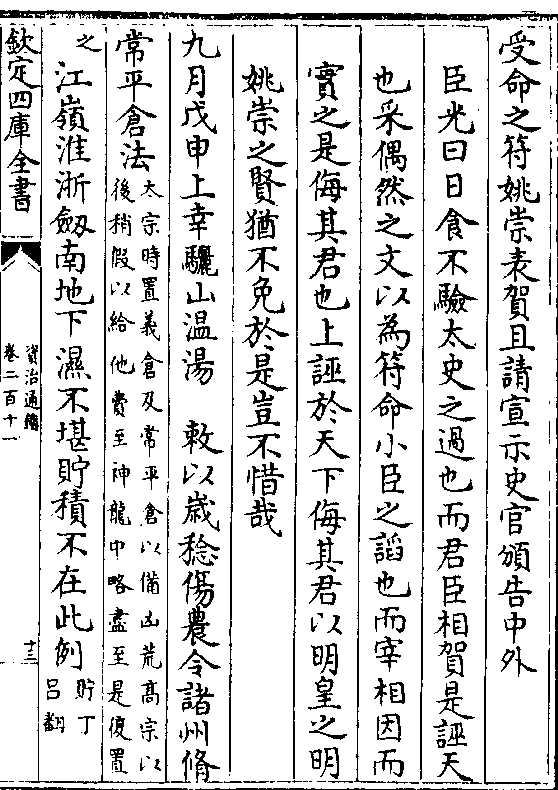 受命之符姚崇表賀且請宣示史官頒告中外
臣光曰日食不驗太史之過也而君臣相賀是誣天
也采偶然之文以為符命小臣之謟也而宰相因而
實之是侮其君也上誣於天下侮其君以明皇之明
姚崇之賢猶不免於是豈不惜哉
九月戊申上幸驪山温湯 敕以歳稔傷農令諸州脩
常平倉法太宗時置義倉及常平倉以備凶荒髙宗以
後稍假以給他費至神龍中略盡至是復置
之江嶺淮浙劔南地下濕不堪貯積不在此例貯丁
呂翻
欽定四庫全書
資治通鑑
卷二百十一
十三